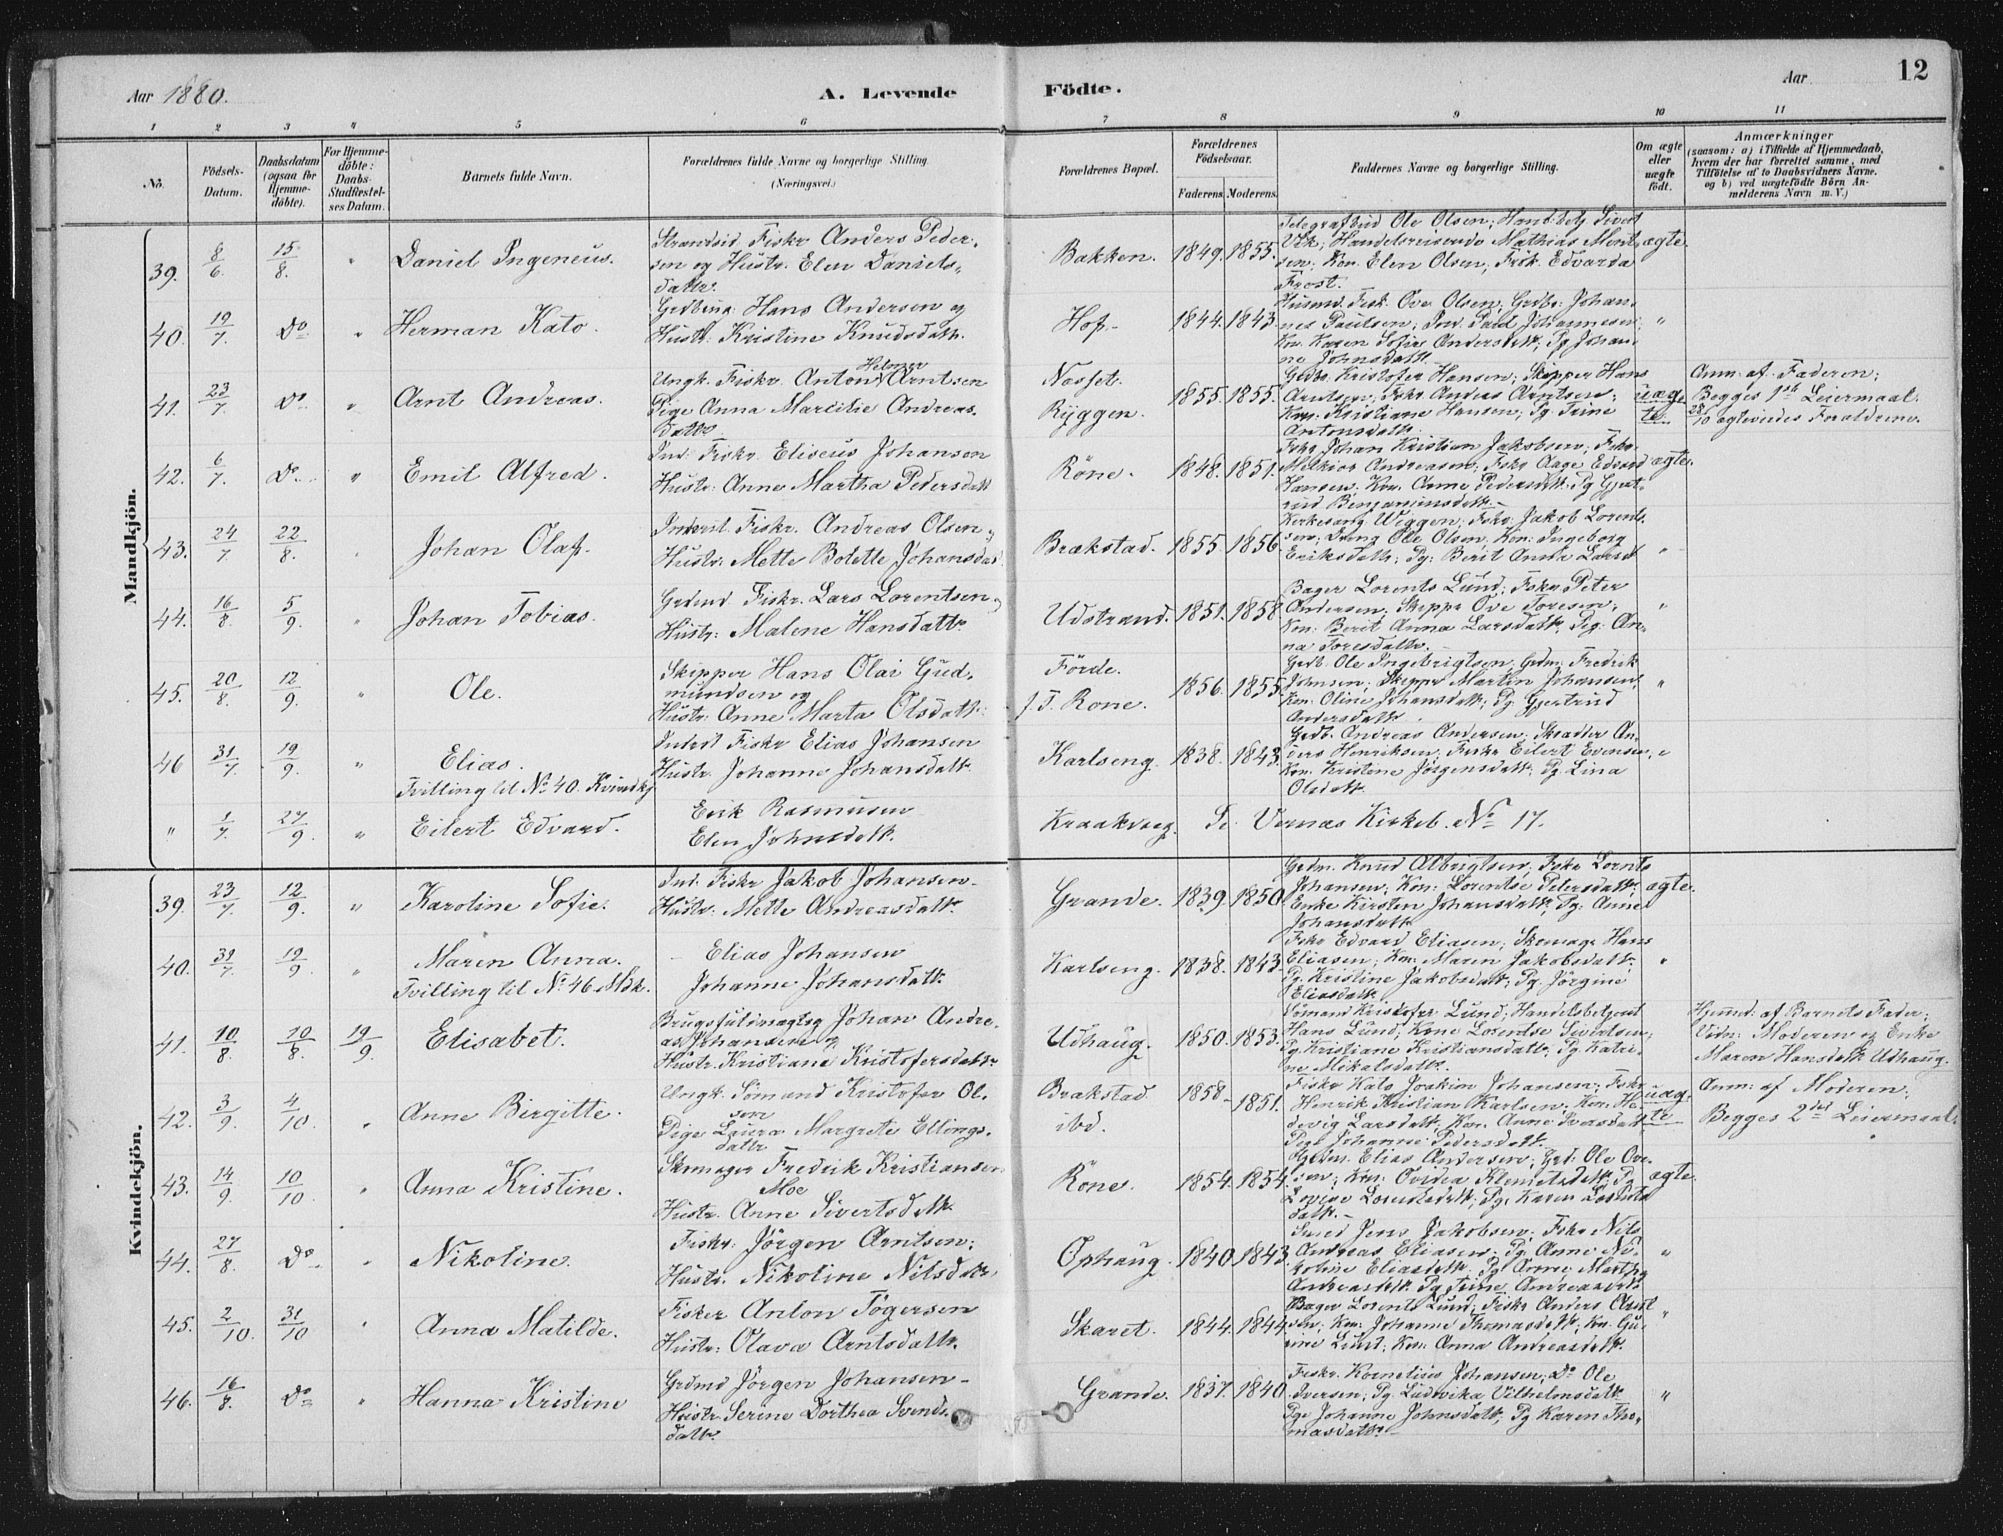 Aar 1880.
A. Levende
Födte.
Aar
12
1 2 3 4 5 6 7 8 9 10 11
No.
Födsels-Datum.
Daabsdatum (ogsaa for Hjemmedöbte).
For Hjemmedöbte: Daabs-Stadfæstelses Datum.
Barnets fulde Navn.
Forældrenes fulde Navne og borgerlige Stilling (Næringsvei.)
Forældrenes Bopæl.
Forældrenes Fødselsaar.
Faderens. Moderens.
Faddernes Navne og borgerlige Stilling.
Om ægte eller uægte födt.
Anmærkninger
(saasom: a) i Tilfælde af Hjemmedaab, hvem der har forrettet samme, med Tilföielse af to Daabsvidners Navne, og b) ved uægtefödte Börn Anmelderens Navn m. V.)
Mandkjön.
39. 8/6. 15/8. " Daniel Ingeneus.
Strandsid. Fiskr Anders Peder-
sen og Hustr. Elen Daniels-
datr.
Bakken. 1849. 1855.
Telegrafbud Ole Olsen; Handelsbetj Sivert
Vik; Handelsreisende Mathias Morit
sen; Kon. Elen Olsen; Frøk. Edvarda
Frost.
ægte.
40. 19/7. Do " Herman Kato.
Grdbrug. Hans Andersen og
Hustr. Kristine Knudsdatr.
Hof. 1844. 1843.
Husmd. Fisk. Ove Olsen; Grdbr. Johan-
nes Paulsen; Ind. Paul Johannesen;
Kon. Karen Sofie Andersdatr; Pg Johan-
ne Johnsdatr.
"
41. 23/7. Do " Arnt Andreas.
Ungk. Fiskr. Anton Helmer Arntsen
Pige Anna Marcilie Andreas-
datr
Nosset.
Ryggen.
1855. 1855.
Grdbr. Kristofer Hansen; Skipper Hans
Arntsen; Fskr Anders Arntsen;
Kon. Kristiane Hansen; Pg Trine
Antonsdatr.
uæg-
te
Anm. af Faderen;
Begges 1ste Leiermaal.
28/10 ægteviedes Forældrene.
42. 6/7. Do " Emil Alfred.
Ind. Fiskr. Eliseus Johansen
Hustr. Anne Martha Pedersdatr
Röne. 1848. 1851.
Fskr Johan Kristian Jakobsen; Fskr.
Melkior Andreasen; Fskr Aage Edvard
Hansen. Kon. Anne Pedersdatr. Pg Gjert-
rud Benjaminsdatr.
ægte.
43. 24/7. 22/8. Johan Olaf.
Inderst. Fiskr. Andreas Olsen
Hustr. Mette Bolette Johansdatr
Brækstad. 1855. 1856.
Kirkesang. Wiggen; Fskr Jakob Lorents-
sen; Dreng Ole Olsen; Kon. Ingeborg
Eriksdatr; Pg: Berit Anna Larsd
"
44. 16/8. 5/9. " Johan Tobias.
Grdmd Fiskr. Lars Lorentsen
Hustr: Malene Hansdatr.
Udstrand. 1851. 1858
Bager Lorents Lund; Fskr Peter
Andersen; Skippr Ove Toresen;
Kon: Berit Anna Larsdatr; Pig: An-
na Toresdatr.
"
45. 20/8. 12/9. " Ole.
Skipper Hans Olai Gud-
mundsen og
Hustr: Anne Marta Olsdatr.
Förde.
f. T. Rone.
1856. 1855.
Grdb. Ole Ingebrigtsen; Grdm. Fredrik
Johnsen; Skippr Martin Johansen;
Kon: Oline Johansdatr; Pg Gjertrud
Andersdatr.
"
46 31/7. 19/9. " Elias.
Tvilling til No 40. Kvindkj
Inderst Fiskr Elias Johansen
Hustr. Johanne Johansdatr
Karlseng. 1838. 1843.
Grdb. Andreas Andersen; Skrædder An-
ders Henriksen; Fiskr Eilert Evensen;
Kon. Kristine Jørgensdatr; Pg. Lina
Olsdatr.
"
" 1/7. 27/9. " Eilert Edvard.
Erik Rasmusen
Elen Johnsdatr.
Kraakvaag. Se Vernæs Kirkeb. No 17.
Kvindekjön.
39. 23/7. 12/9. " Karoline Sofie.
Ind. Fiskr Jakob Johansen
Hustr. Mette Andreasdatr.
Grande. 1839. 1850
Grdm. Knud Albrigtsen; Fskr Lornts
Johansen; Kon: Lorentse Petersdatr;
Enke Kirsten Johansdatr; Pg: Anne
Johansdatr.
ægte.
40. 31/7. 19/9. " Maren Anna.
Tvilling til No 46 Mdk.
Elias Johansen
Johanne Johansdatr.
Karlseng. 1838. 1843
Fskr Edvard Eliasen; Skomagr Hans
Eliasen; Kon: Maren Jakobsdatr;
Pg. Kristine Jakobsdatr; Pg. Jörgine
Eliasdatr.
"
41. 10/8. 10/8. 19/9. Elisabet.
Brugsfuldmægtig Johan Andre-
as Johansen og
Hustr. Kristiane Kristofersdatr.
Udhaug. 1850. 1853.
Sömand Kristofer Lund; Handelsbetjent
Hans Lund; Kone Lorentse Sivertsen;
Pg Kristiane Kristiansdatr; Pg. Katri-
ne Mikalsdatr.
Hjemd. af Barnets Fader;
Vidn: Moderen og Enke
Maren Hansdatr Udhaug.
42. 3/9. 4/10. " Anne Birgitte.
Ungk. Sömand Kristofer Ol-
sen
Pige Laura Margrete Ellings-
datr
Brækstad
ibd.
1858 1851.
Fiskr Kato Joakim Johansen; Fskr
Henrik Kristian Karlsen; Kon. He-
devig Larsdatr. Kon. Anne Iversdatr
Pige Johanne Pedersdatr.
uæg-
te
Anm: af Moderen;
Begges 2det Leiermaal.
43. 14/9. 10/10. " Anna Kristine.
Skomager Fredrik Kristiansen
Moe
Hustr. Anne Sivertsdatr.
Röne. 1854. 1854.
Elias Andersen; Ole Ove-
sen; Kon: Ovidia Klemetsdatr; Pg
Lovise Lorentsdatr; Pg. Karen Lornts
datr.
ægte.
44. 27/8. Do " Nikoline.
Fiskr: Jörgen Arntsen;
Hustr. Nikoline Nilsdatr
Ophaug. 1840 1843.
Jens Jakobsen; Fskr Nils
Andreas Eliasen; Pg. Anne Ni-
koline Eliasdatr. Pg Anne Martha
Andreasdatr. Pg Trine Andreasdatr.
"
45. 2/10. 31/10 " Anna Matilde.
Fisker Anton Tögersen
Hustr: Olava Arntsdatr.
Skaret. 1844. 1844.
Bager Lorents Lund; Fiskr Anders Arnt
sen; Kon: Johanne Thomasdatr; Kon. Gu-
rine Lund; Kon: Anna Andreasdatr.
"
46. 16/8. Do " Hanna Kristine
Grdmd Jörgen Johansen
Hustr Serine Dorthea Svends-
datr.
Grande. 1837. 1840.
Fiskr. Kornelius Johansen; Do Ole
Iversen; Pg Ludvika Vilhelmsdatr;
Pge Johanne Johnsdatr; Pg Karen Tho-
masdatr.
"